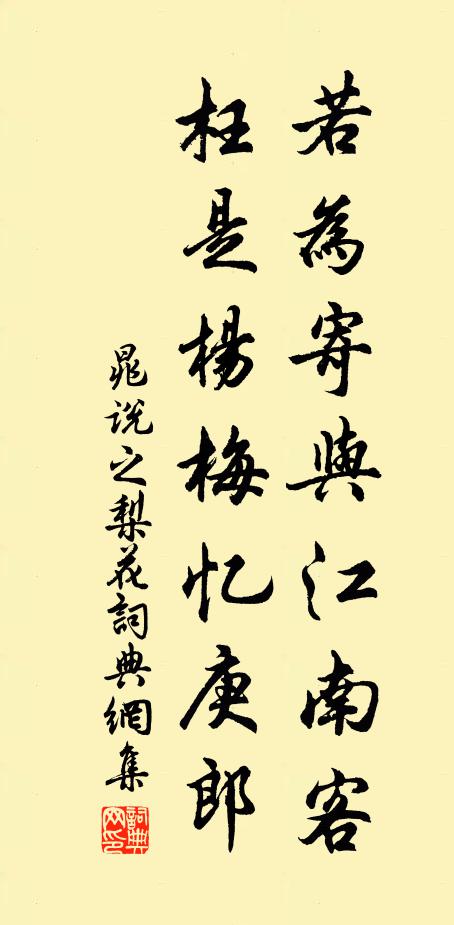 若為寄與江南客
枉是楊梅忆庾郎
晁说之梨花詞典網集
詞典網印